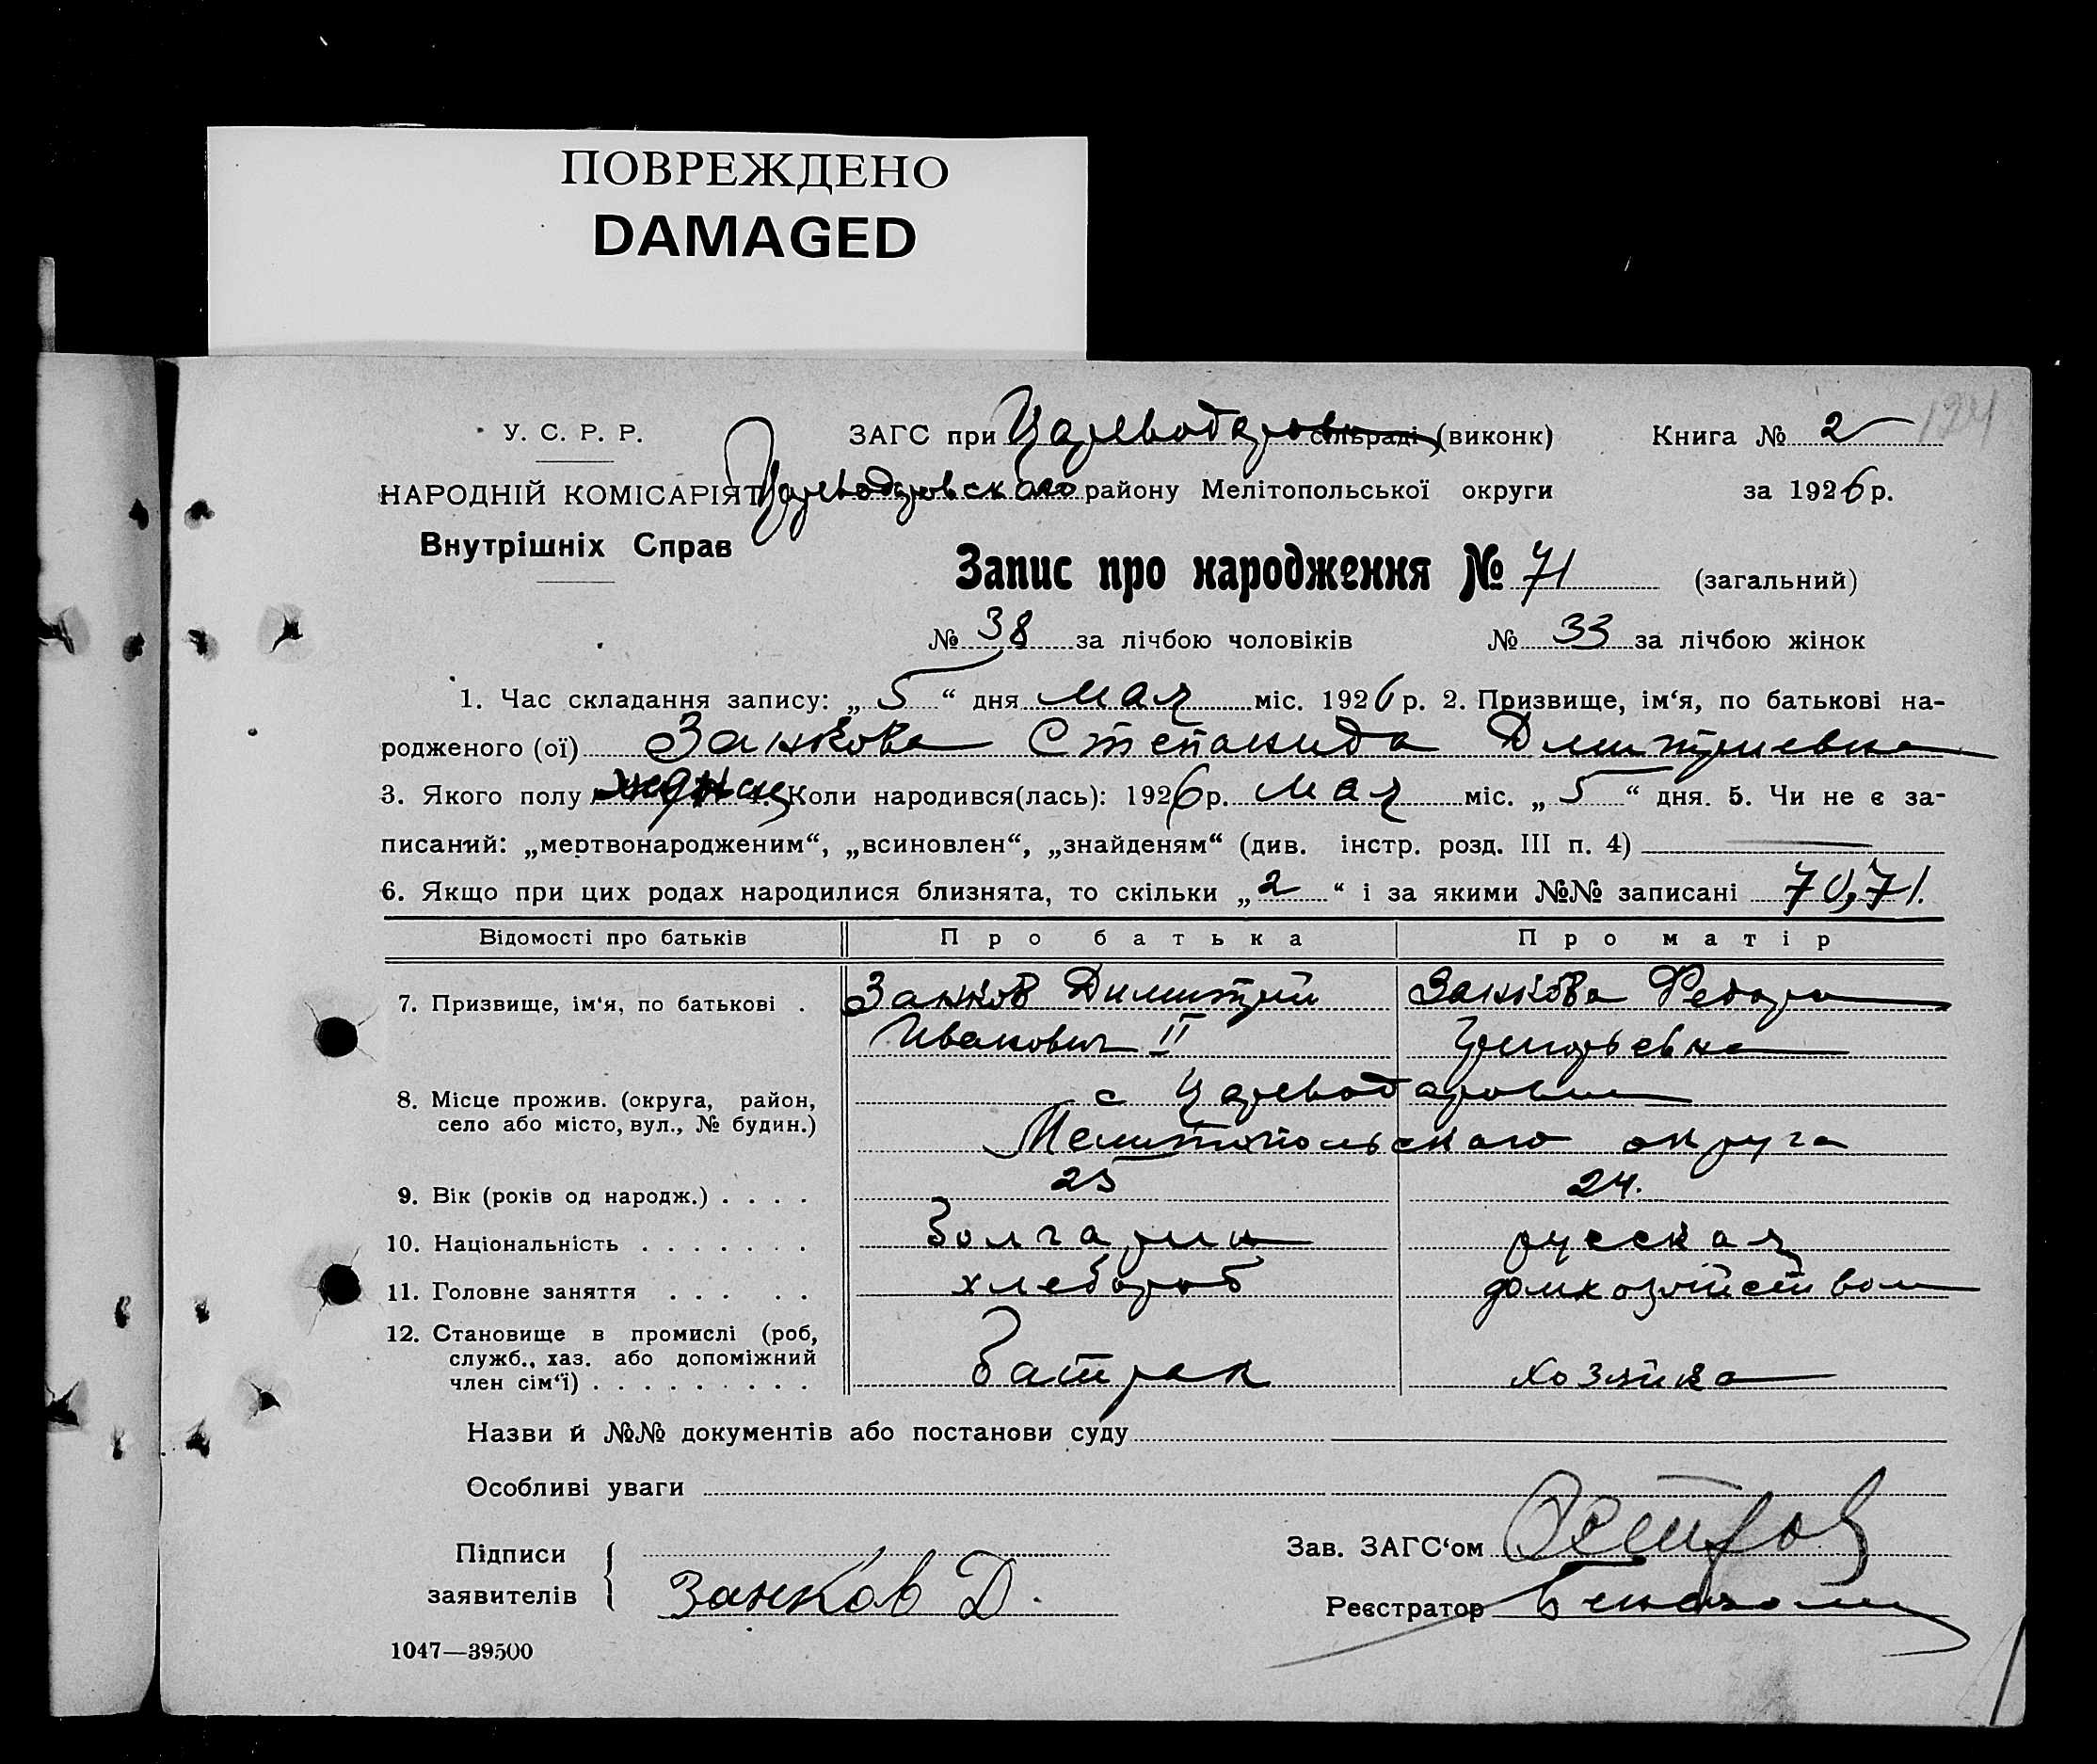 ПОВРЕЖДЕНО
DAMAGED
124
У. С. Р. Р.
ЗАГС при Царевода­ров сільраді (виконк)
Книга № 2
НАРОДНІЙ КОМІСАРІЯТ
Цареводаровского району Мелітопольської округи
за 1926 р.
Внутрішніх Справ
Запис про народження № 71 (загальний)
№ 38 за лічбою чоловіків № 33 за лічбою жінок
1. Час складання запису: „5“ дня мая міс. 1926 р. 2. Призвище, ім‘я, по батькові на-
родженого (ої) Занкова Степанида Дмитриевна
3. Якого полу 4. Коли народився(лась): 1926 р. мая міс. „5“ дня. 5. Чи не є за-
писаний: „мертвонародженим“, „всиновлен“, „знайденям“ (див. інстр. розд. III п. 4)
6. Якщо при цих родах народилися близнята, то скільки „2“ і за якими №№ записані 70, 71.
Відомості про батьків Про батька Про матір
7. Призвище, ім‘я, по батькові . Занков Димитрий Занкова Федора
Иванович II Григорьевна
8. Місце прожив. (округа, район, с Цареводаровки
село або місто, вул., № будин.)
Мелитопольского округа
9. Вік (років од народж.) . . . . 25 24.
10. Національність . . . . . . . Болгарин русская
11. Головне заняття . . . . . хлебороб домхозяйством
12. Становище в промислі (роб,
служб., хаз. або допоміжний
член сім‘ї) . . . . . . . . . Батрак хозяйка
Назви й №№ документів або постанови суду
Особливі уваги
Підписи
заявителів
Занков Д.
Зав. ЗАГС‘ом
Реєстратор
1047—39500